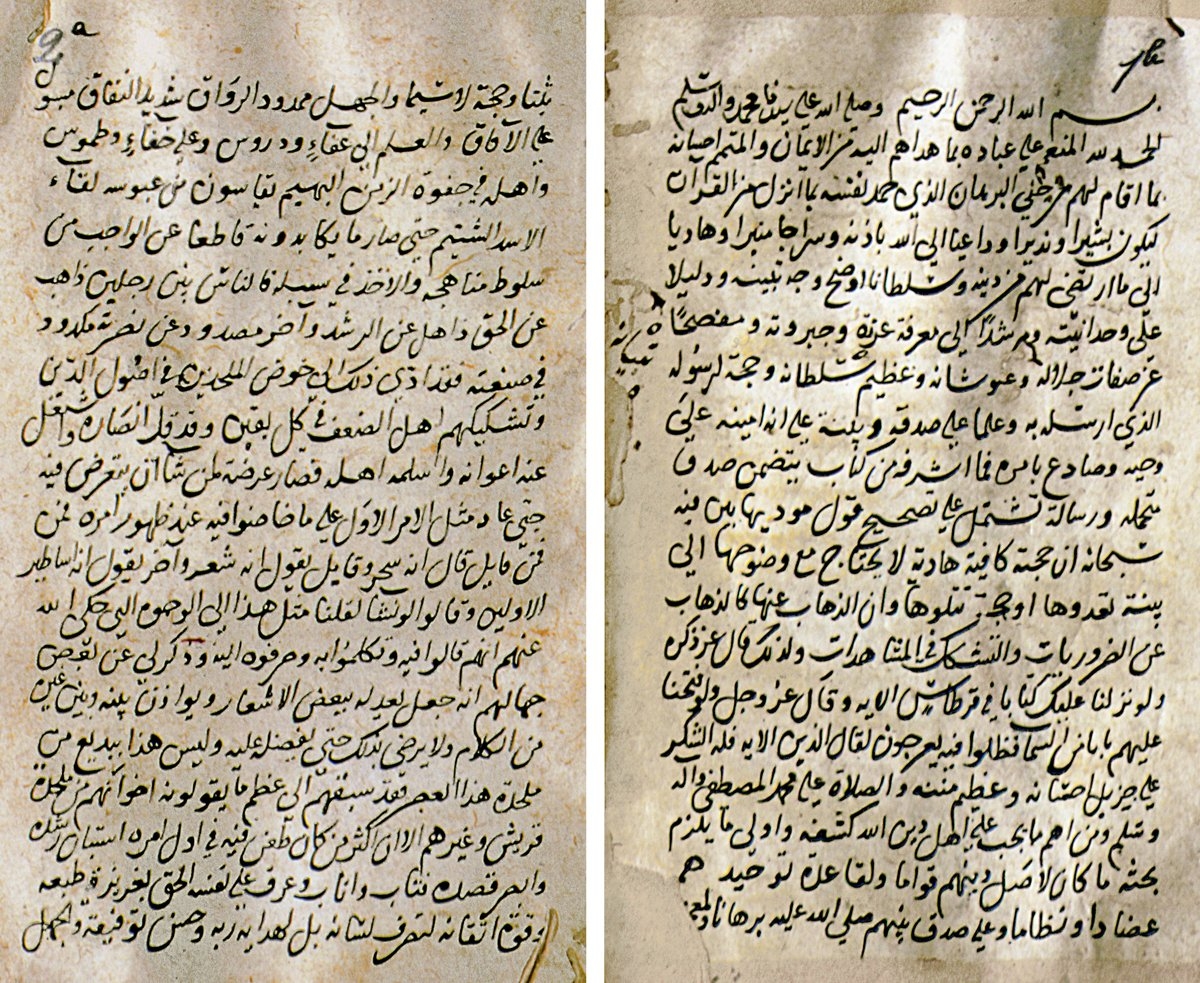 بسم الله الرحمن الرحيم وصلى الله على سيدنا محمد واله وسلم
الحمد لله المنعم على عباده بما هداهم اليه من الايمان والمتمم احسانه
بما اقام لهم من جلي البرهان الذي حمد نفسه بما انزل من القران
ليكون بشيرا ونذيرا وداعيا الى الله باذنه وسراجا منيرا وهاديا
الى ما ارتضى لهم من دينه وسلطانا اوضح وجه تبينه ودليلا
على وحدانيته ومرشدًا الى معرفة عزته وجبروته ومفصحًا
عن صفات جلاله وعلو شانه وعظيم سلطانه وحجة لرسوله
الذي ارسله به وعلما على صدقه وبينة على انه امينه على
وحيه وصادع بامره فما اشرفه من كتاب يتضمن صدق
متحمله ورسالة تشتمل على تصحيح قول موديها بين فيه
سبحانه ان حجته كافية هادية لا يحتاج مع وضوحها الى
بينة تعدوها او حجة تتلوها وان الذهاب عنها كالذهاب
عن الضروريات والتشكك في المشاهدات ولذلك قال عز ذكره
ولو نزلنا عليك كتابا في قرطاس الايه وقال عز وجل ولو فتحنا
عليهم بابا من السما فظلوا فيه يعرجون لقال الذين الايه فله الشكر
على جزيل احسانه وعظيم مننه والصلاة على محمد المصطفى واله
وسلم ومن اهم ما يجب على اهل دين الله كشفه واولى ما يلزم
بحثه ما كان لاصل دينهم قواما ولقاعدة توحيدهم
عمادا ونظاما وعلى صدق نبيهم صلى الله عليه برهانا ولمعجز
ثبتا وحجة لاسيما والجهل ممدود الرواق شديد النفاق مستول
على الآفاق والعلم الى عفاءٍ ودروس وعلى خفاءٍ وطموس
واهله في جفوة الزمن البهيم يقاسون من عبوسه لقاء
الاسد الشتيم حتى صار ما يكابدونه قاطعا عن الواجب من
سلوك مناهجه والاخذ في سبيله فالناس بين رجلين ذاهب
عن الحق ذاهل عن الرشد وآخر مصدود عن نصرته مكدود
في صنعته فقد ادى ذلك الى خوض الملحدين في اصول الدين
وتشكيكهم اهل الضعف في كل يقين وقد قلّ انصاره واشتغل
عنه اعوانه واسلمه اهله فصار عرضة لمن شا ان يتعرض فيه
حتى عاد مثل الامر الاول على ما خاضوا فيه عند ظهور امره فمن
فمن قايل قال انه سحر وقايل يقول انه شعر وآخر يقول انه اساطير
الاولين وقالوا لو نشا لقلنا مثل هذا الى الوجوه التي حكى الله
عنهم انهم قالوا فيه وتكلموا به وصرفوه اليه وذكر لي عن بعض
جهالهم انه جعل يعدله ببعض الاشعار ويوازن بينه وبين غيره
من الكلام ولا يرضى بذلك حتى يفضله عليه وليس هذا ببديع من
ملحدة هذا العصر فقد سبقهم الى عظم ما يقولونه اخوانهم من ملحدة
قريش وغيرهم الا ان اكثر من كان طعن فيه في اول امره استبان رشده
وابصر قصده فتاب واناب وعرف على نفسه الحق بغريزة طبعه
وقوة اتقانه لتصرف لسانه بل لهداية ربه وحسن توفيقه والجهل